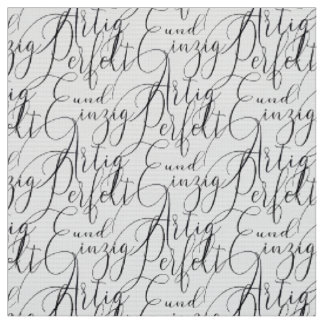 Artig
und
Einzig
Perfekt
Artig
und
Einzig
Perfekt
Artig
und
Einzig
Perfekt
Artig
und
Einzig
Perfekt
Artig
und